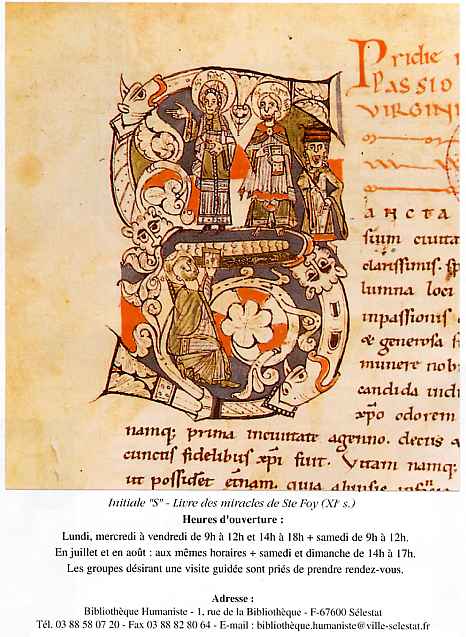 Pridie
Passio
virgini
ancta
sium ciuita
clarissimis. sp
lumina loci
inpassionis
& generosa
munere nobi
candida indi
xpo odorem
namq; prima inciuitate agenno. decus
cunctis fidelibus xpi fuit. Vitam namq;
ut possidet
Initiale "S" - Livre des miracles de Ste Foy (XIe s.)
Heures d'ouverture :
Lundi, mercredi à vendredi de 9h à 12h et 14h à 18h + samedi de 9h à 12h.
En juillet et en août : aux mêmes horaires + samedi et dimanche de 14h à 17h.
Les groupes désirant une visite guidée sont priés de prendre rendez-vous.
Adresse :
Bibliothèque Humaniste - 1, rue de la Bibliothèque - F-67600 Sélestat
Tél. 03 88 58 07 20 - Fax 03 88 82 80 64 - E-mail : bibliothèque.humaniste@ville-selestat.fr